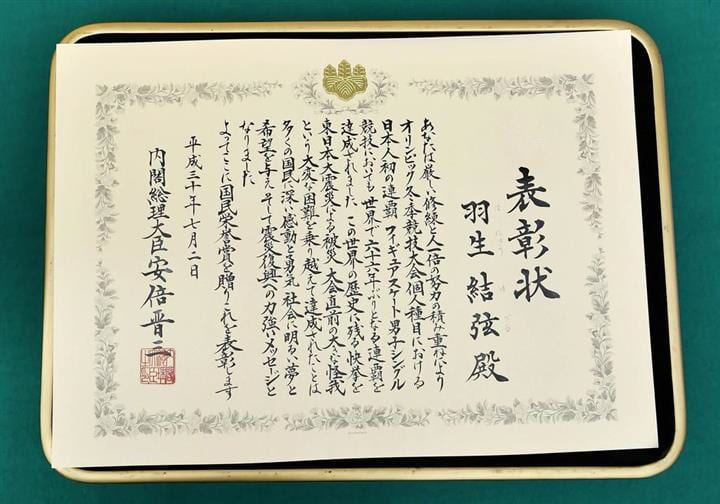 表彰状
羽生 結弦 殿
あなたは厳しい修練と人一倍の努力の積み重ねにより
オリンピック冬季競技大会個人種目における
日本人初の連覇 フィギュアスケート男子シングル
競技においても世界で六十六年ぶりとなる連覇を
達成されました この世界の歴史に残る快挙を
東日本大震災による被災 大会直前の大きな怪我
という大変な困難を乗り越えて達成されたことは
多くの国民に深い感動と勇気 社会に明るい夢と
希望を与え そして震災復興への力強いメッセージと
なりました
よってここに国民栄誉賞を贈りこれを表彰します
平成三十年七月二日
内閣総理大臣 安倍晋三